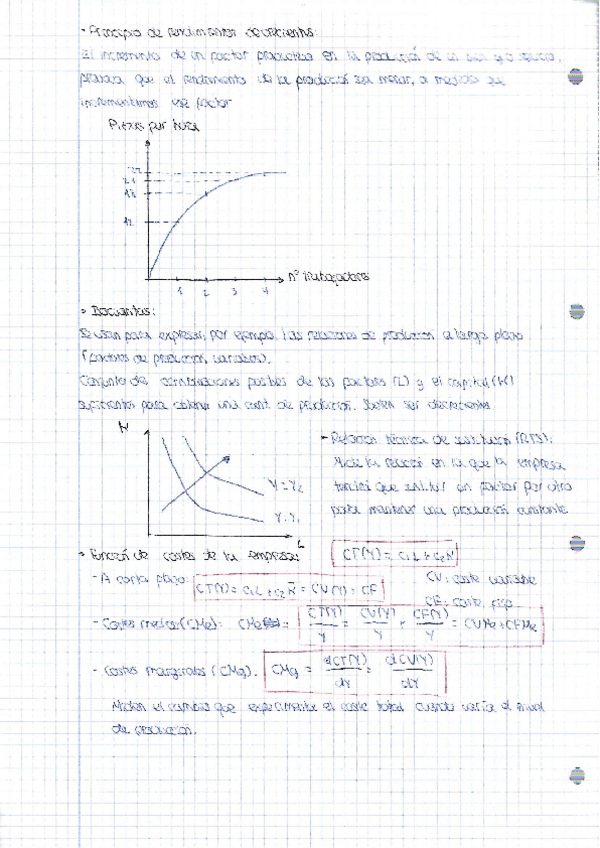 - Principio de rendimientos decrecientes:
El incremento de un factor productivo en la producción de un bien o servicio,
provoca que el rendimiento de la producción sea menor, a medida que
incrementamos ese factor
Piezas por hora
22
21
18
12
1 2 3 4
nº trabajadores
- Isocuantas:
Se usan para expresar, por ejemplo, las relaciones de producción a largo plazo
(factores de producción variables).
Conjunto de combinaciones posibles de los factores (L) y el capital (K)
suficientes para obtener una cant. de producción. Suelen ser decrecientes
K
Y=Y₂
Y=Y₁
L
- Relación técnica de sustitución (RTS):
Mide la relación en la que la empresa
tendrá que sustituir un factor por otro
para mantener una producción constante
- Función de costes de la empresa:
CT(Y) = c₁L + c₂K
- A corto plazo: CT(Y) = c₁L + c₂K̄ = CV(Y) + CF
CV: coste variable
CF: coste fijo
- Costes medios (CMe): CMe = CT(Y)/Y = CV(Y)/Y + CF(Y)/Y = CVMe + CFMe
- Costes marginales (CMg): CMg = dCT(Y)/dY = dCV(Y)/dY
Miden el cambio que experimenta el coste total cuando varía el nivel
de producción.